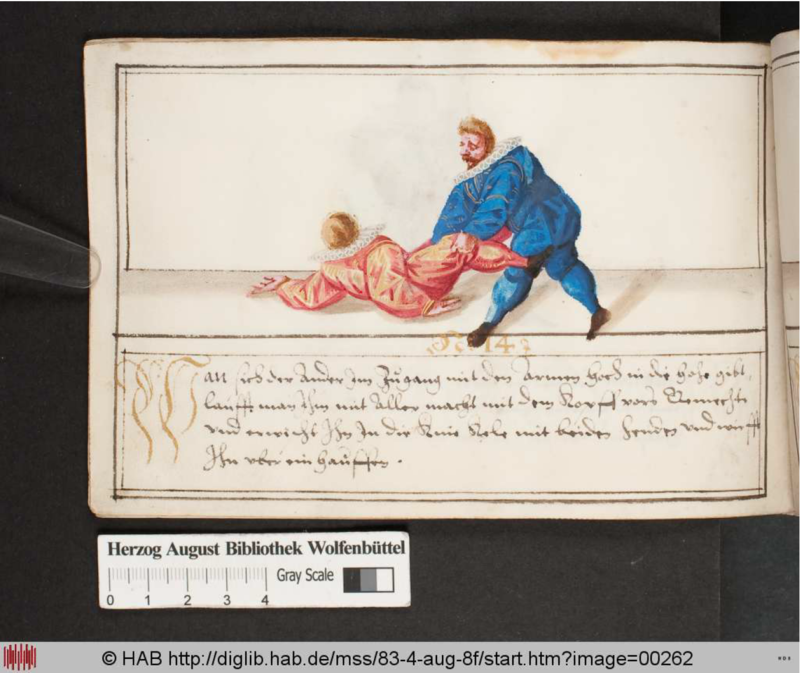 No 148
Wan sich der Ander Im Zugang mit den Armen hoch in die Hohe gibt,
lauffe man Ihm mit Aller macht mit dem Kopff vors Gemechte
und erwischt Ihn In die Knie Kele mit beiden Henden und wirfft
Ihn uber ein hauffen.
Herzog August Bibliothek Wolfenbüttel
Gray Scale
0 1 2 3 4
© HAB http://diglib.hab.de/mss/83-4-aug-8f/start.htm?image=00262